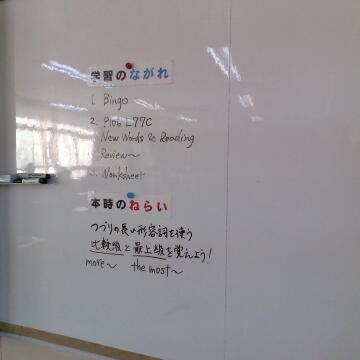 学習のながれ
1. Bingo
2. P106 L77C
New Words & Reading
Review〜
3. Worksheet
本時のねらい
つづりの長い形容詞を使う
比較級と最上級を覚えよう！
more〜 the most〜